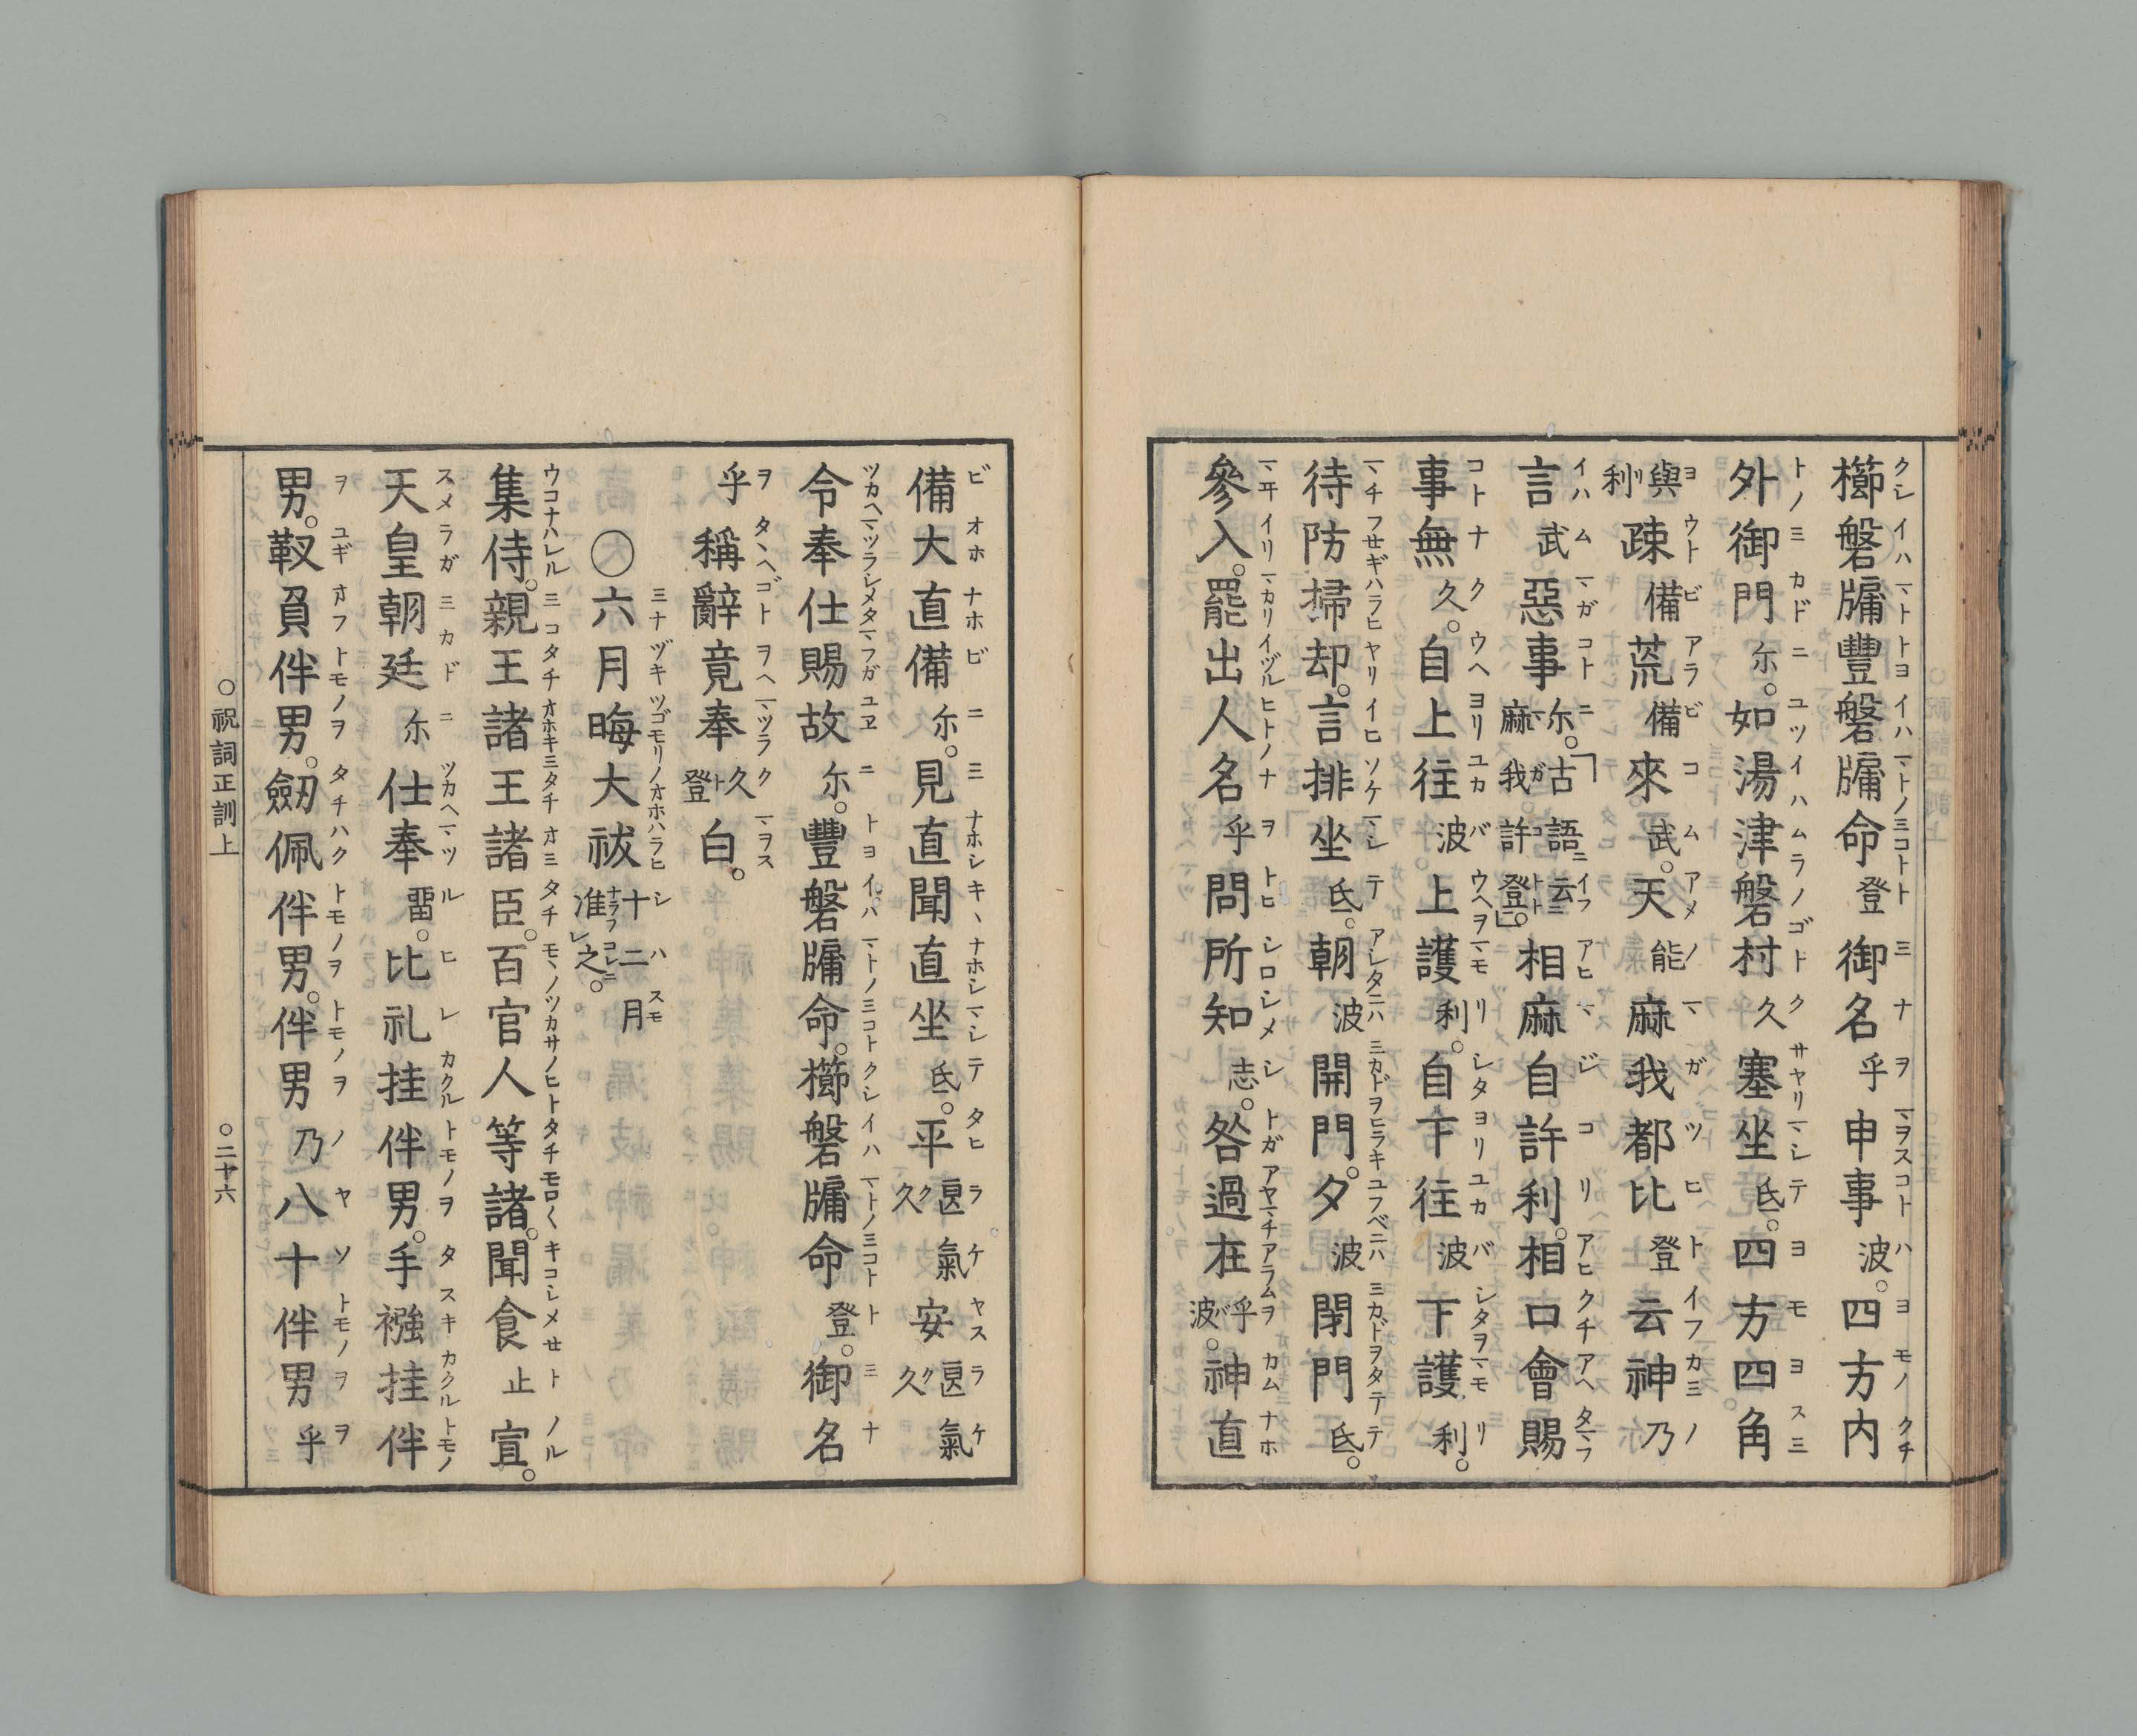 櫛磐牖豐磐牖命登御名乎申事波。四方內
外御門尓。如湯津磐村久塞坐氐。四方四角
與利疎備荒備來武。天能麻我都比登云神乃
言武惡事尓。麻「古語云我許登。」相麻自許利。相口會賜
事無久。自上往波上護利。自下往波下護利。
待防掃却。言排坐氐。朝波開門。夕波閇門氐。
參入。罷出人名乎問所知志。咎過在乎波。神直
備大直備尓。見直聞直坐氐。平良久氣安良久氣
令奉仕賜故尓。豐磐牖命。櫛磐牖命登。御名
乎稱辭竟奉久登白。
〇六月晦大祓十二月准之。
集侍。親王諸王諸臣。百官人等諸。聞食止宣。
天皇朝廷尓仕奉留。比礼挂伴男。手襁挂伴
男。靫負伴男。劔佩伴男。伴男乃八十伴男乎
〇祝詞正訓上
〇二十六